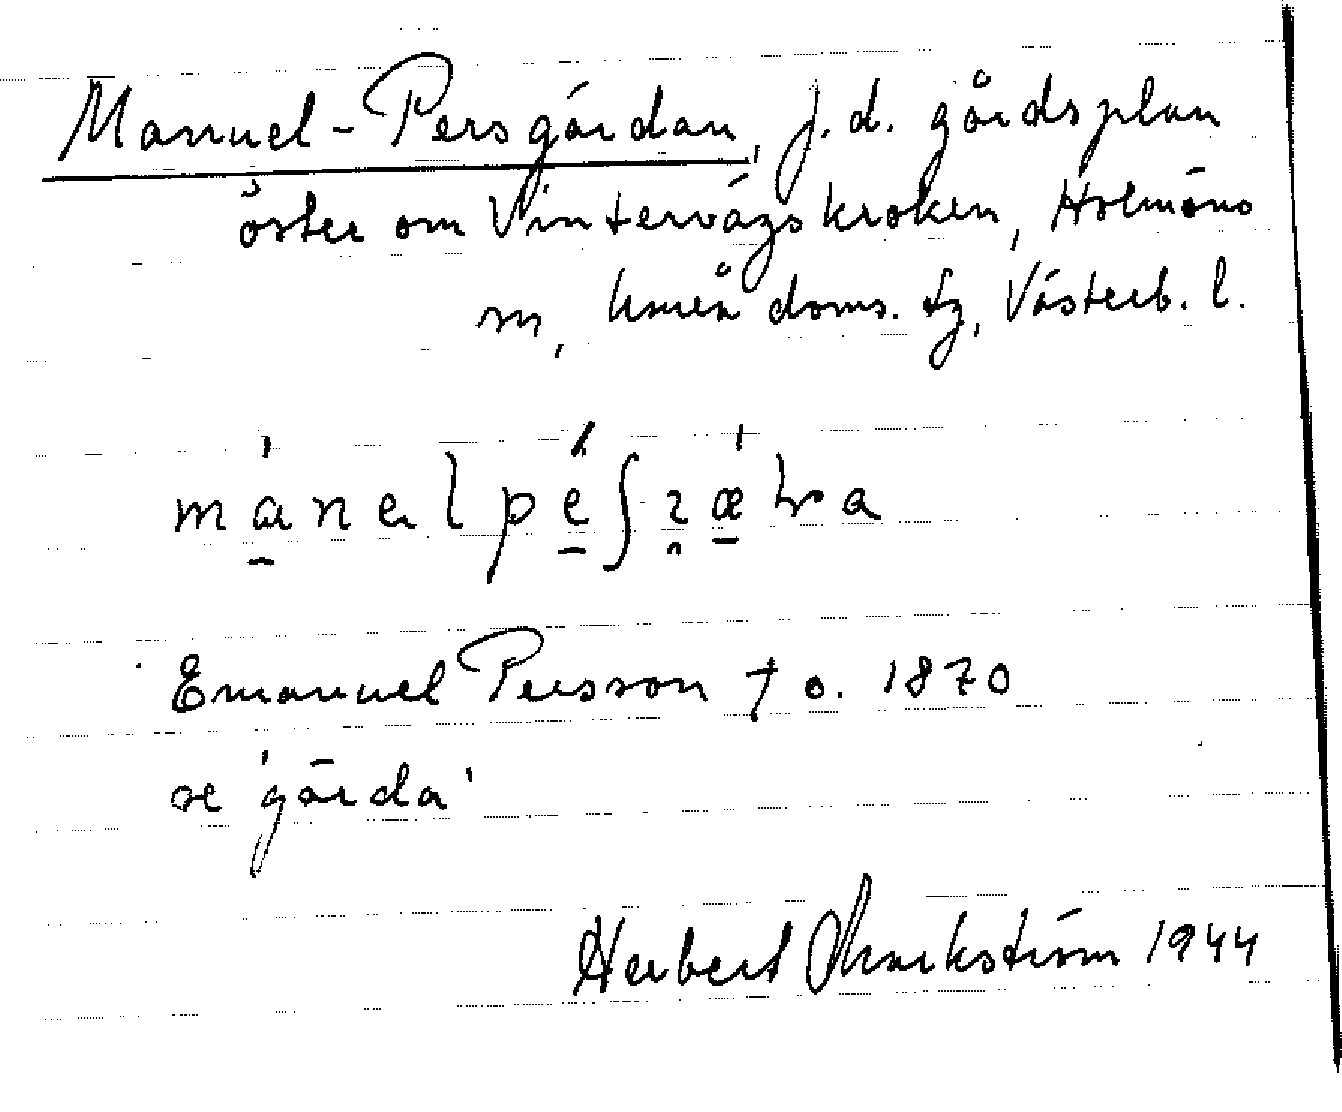 Manuel-Persgärdan, f.d. gårdsplan
öster om Vintervägskroken, Holmöns
sn, Umeå doms. tg, Västerb. l.
Emanuel Persson † o. 1870
se 'gärda'
Herbert Markström 1944